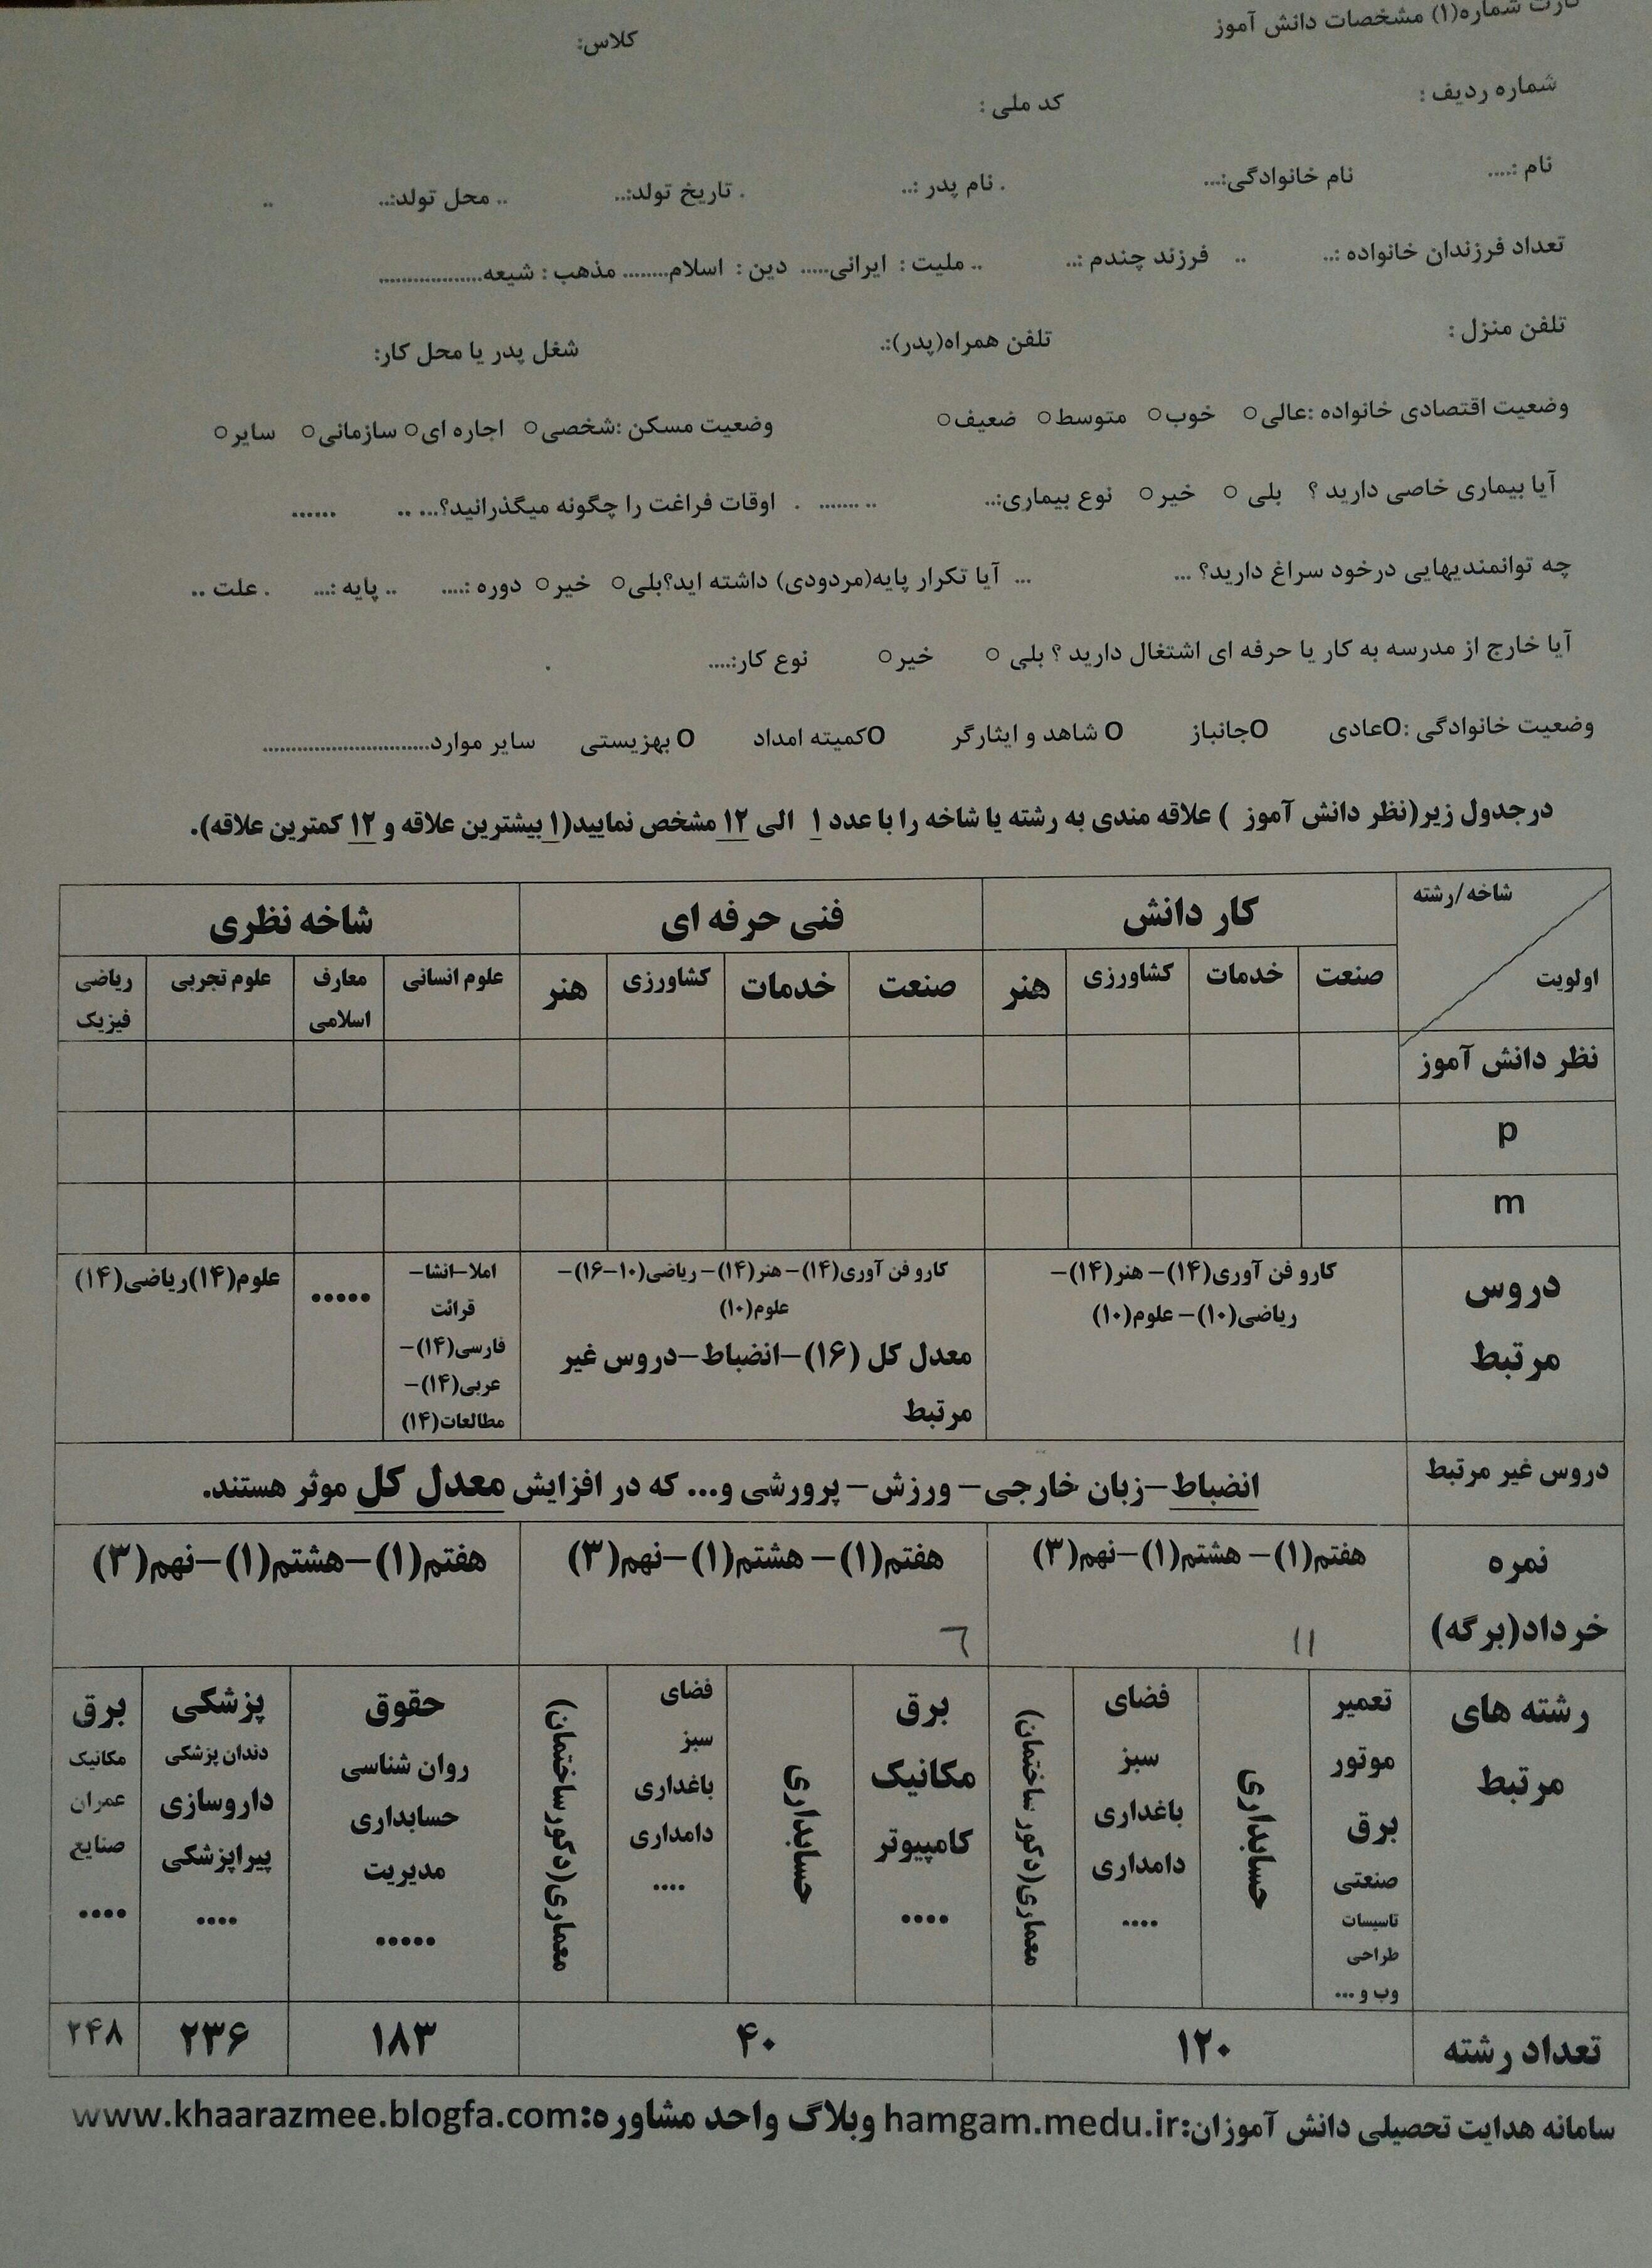 کارت شماره(۱) مشخصات دانش آموز کلاس:
شماره ردیف : کد ملی :
نام :.... نام خانوادگی:... . نام پدر :.. . تاریخ تولد:... .. محل تولد:.. ..
تعداد فرزندان خانواده :.. .. فرزند چندم :.. .. ملیت : ایرانی..... دین : اسلام........ مذهب : شیعه..................
تلفن منزل : تلفن همراه(پدر):. شغل پدر یا محل کار:
وضعیت اقتصادی خانواده :عالی○ خوب○ متوسط○ ضعیف○ وضعیت مسکن :شخصی○ اجاره ای○ سازمانی○ سایر○
آیا بیماری خاصی دارید ؟ بلی ○ خیر○ نوع بیماری:.. .. ....... . اوقات فراغت را چگونه میگذرانید؟... .. ......
چه توانمندیهایی درخود سراغ دارید؟ ... ... آیا تکرار پایه(مردودی) داشته اید؟بلی○ خیر○ دوره :.... .. پایه :... . علت ..
آیا خارج از مدرسه به کار یا حرفه ای اشتغال دارید ؟ بلی ○ خیر○ نوع کار:.... .
وضعیت خانوادگی :Oعادی Oجانباز O شاهد و ایثارگر Oکمیته امداد O بهزیستی سایر موارد.............................
درجدول زیر(نظر دانش آموز ) علاقه مندی به رشته یا شاخه را با عدد ۱ الی ۱۲ مشخص نمایید(۱ بیشترین علاقه و ۱۲ کمترین علاقه).
شاخه/رشته کار دانش فنی حرفه ای شاخه نظری
اولویت صنعت خدمات کشاورزی هنر صنعت خدمات کشاورزی هنر علوم انسانی معارف اسلامی علوم تجربی ریاضی فیزیک
نظر دانش آموز
p
m
دروس مرتبط
کارو فن آوری(۱۴)– هنر(۱۴)–
ریاضی(۱۰)– علوم(۱۰)
کارو فن آوری(۱۴)– هنر(۱۴)– ریاضی(۱۰–۱۶)–
علوم(۱۰)
معدل کل (۱۶)–انضباط–دروس غیر
مرتبط
املا–انشا–
قرائت
فارسی(۱۴)–
عربی(۱۴)–
مطالعات(۱۴)
•••••
علوم(۱۴)ریاضی(۱۴)
دروس غیر مرتبط انضباط–زبان خارجی– ورزش– پرورشی و... که در افزایش معدل کل موثر هستند.
نمره
خرداد(برگه)
هفتم(۱)– هشتم(۱)–نهم(۳)
۱۱
هفتم(۱)– هشتم(۱)–نهم(۳)
٦
هفتم(۱)–هشتم(۱)–نهم(۳)
رشته های
مرتبط
تعمیر
موتور
برق
صنعتی
تاسیسات
طراحی
وب و ...
حسابداری
فضای
سبز
باغداری
دامداری
....
معماری(دکور ساختمان)
برق
مکانیک
کامپیوتر
....
حسابداری
فضای
سبز
باغداری
دامداری
....
معماری(دکورساختمان)
حقوق
روان شناسی
حسابداری
مدیریت
•••••
پزشکی
دندان پزشکی
داروسازی
پیراپزشکی
....
برق
مکانیک
عمران
صنایع
....
تعداد رشته ۱۲۰ ۴۰ ۱۸۳ ۲۳۶ ۲۴۸
سامانه هدایت تحصیلی دانش آموزان:hamgam.medu.ir وبلاگ واحد مشاوره:www.khaarazmee.blogfa.com